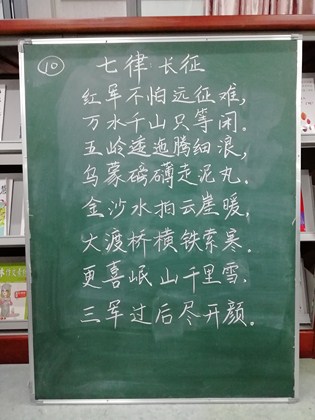 ⑩ 七律·长征
红军不怕远征难，
万水千山只等闲。
五岭逶迤腾细浪，
乌蒙磅礴走泥丸。
金沙水拍云崖暖，
大渡桥横铁索寒。
更喜岷山千里雪，
三军过后尽开颜。